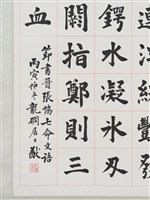 豔發
鍔水凝氷刃
闕指鄭則三
血
節書晉張協七命文語
丙寅仲冬龍磵居士猷